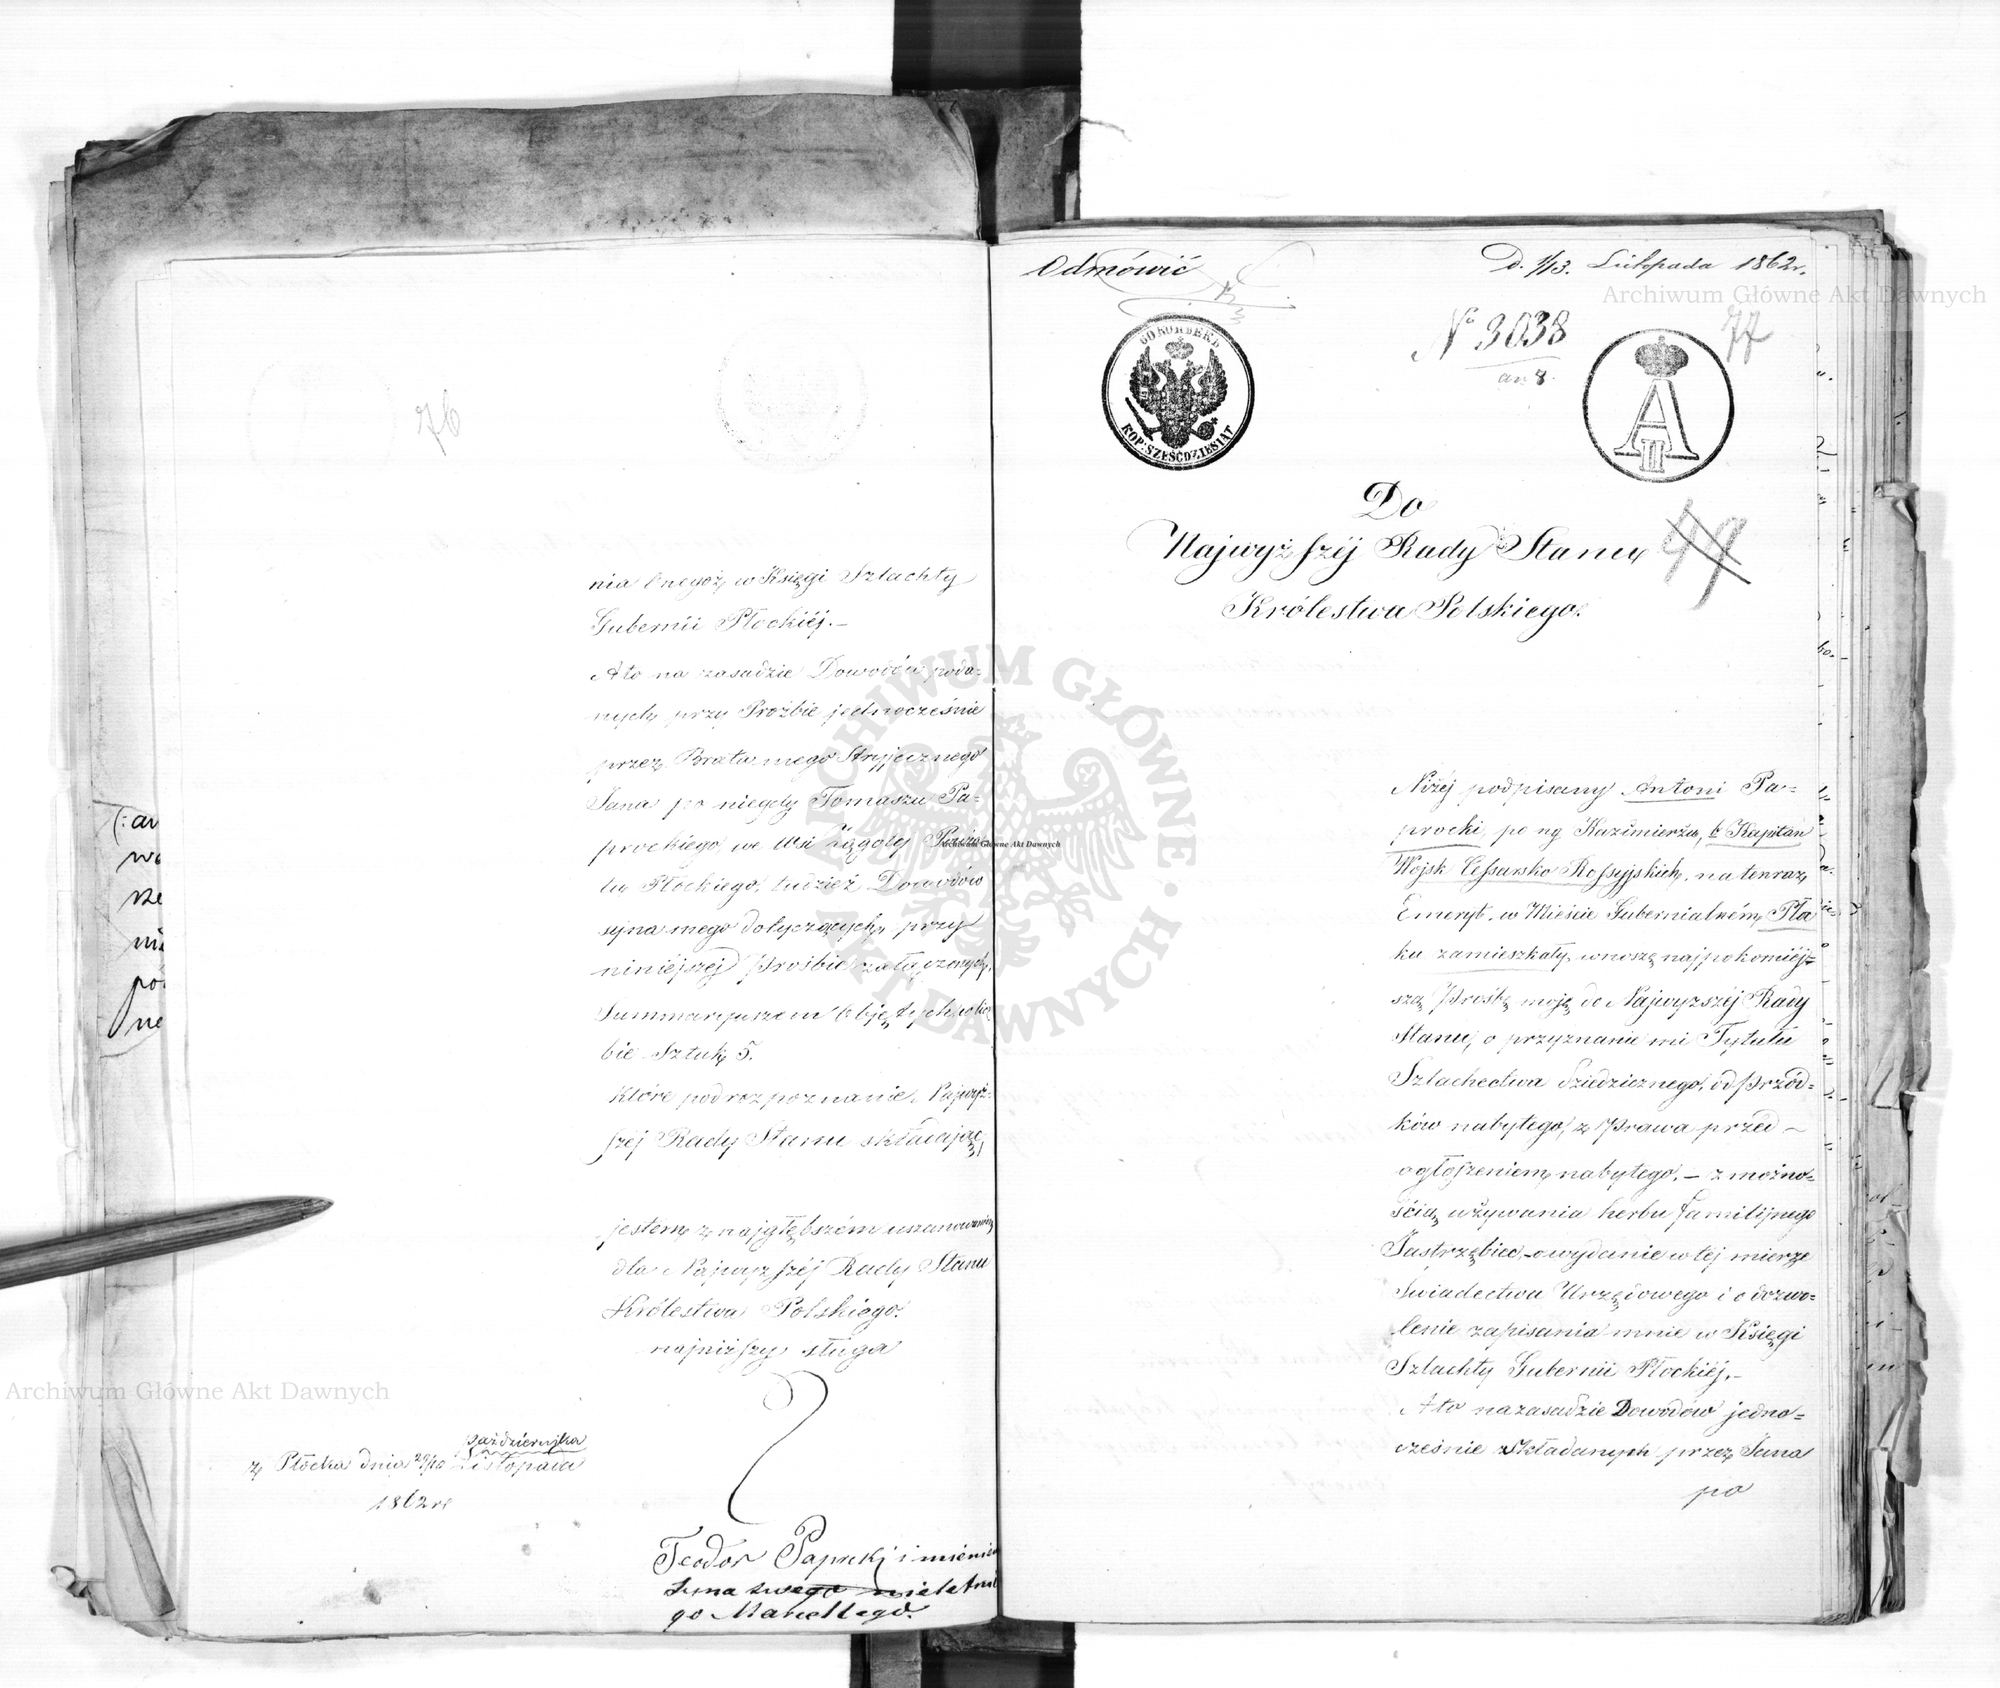 76
nia onegoż w Księgi Szlachty
Gubernii Płockiéj.–
A to na zasadzie Dowodów poda=
nych przy Prożbie jednocześnie
przez Brata mego Stryjecznego
Jana po niegdy Tomaszu Pa=
prockiego, we Wsi Łągoty
tu Płockiego, tudzież Dowodów
syna mego dotyczących, przy
niniejszej Prośbie załączonych,
Summaryuszem Objętych w licz
bie Sztuk 5.
które pod rozpoznanie Najwyż=
széj Rady Stanu składając,
jestem z najgłębszém uszanowaniem
dla Najwyższéj Rady Stanu
Królestwa Polskiego.
najniższy sługa
Października
z Płocka dnia 29/10 Listopada
1862 r
Teodor Paprocki imieniem
Syna swego nieletnie
go Marcellego.
(: an
wa
sze
nia
pó
ne
Odmówić
D. 1/13. Listopada 1862 r.
No 3038
an 8.
77
60 KOPѢEKЪ
KOP. SZEŚĆDZIESIĄT
A II
Do
Najwyższéj Rady Stanu
49
Królestwa Polskiego.
Niżéj podpisany Antoni Pa=
procki, po ng. Kazimierzu, b. Kapitan
Wojsk Cessarsko Rossyjskich, na ten raz
Emeryt, w Mieście Gubernialném Pło
ku zamieszkały, wnoszę najpokorniéj=
szą Prośbę moję do Najwyższéj Rady
Stanu, o przyznanie mi Tytułu
Szlachectwa dziedzicznego, od Przód=
ków nabytego, z Prawa przed –
ogłoszeniem nabytego, – z możno=
ścią używania herbu familijnego
Jastrzębiec, – o wydanie w tej mierze
Swiadectwa Urzędowego i o dozwo=
lenie zapisania mnie w Księgi
Szlachty Gubernii Płockiéj. –
A to na zasadzie Dowodów jedno=
cześnie składanych przez Jana
po
Archiwum Główne Akt Dawnych
Archiwum Główne Akt Dawnych
Archiwum Główne Akt Dawnych
ARCHIWUM GŁÓWNE AKT DAWNYCH